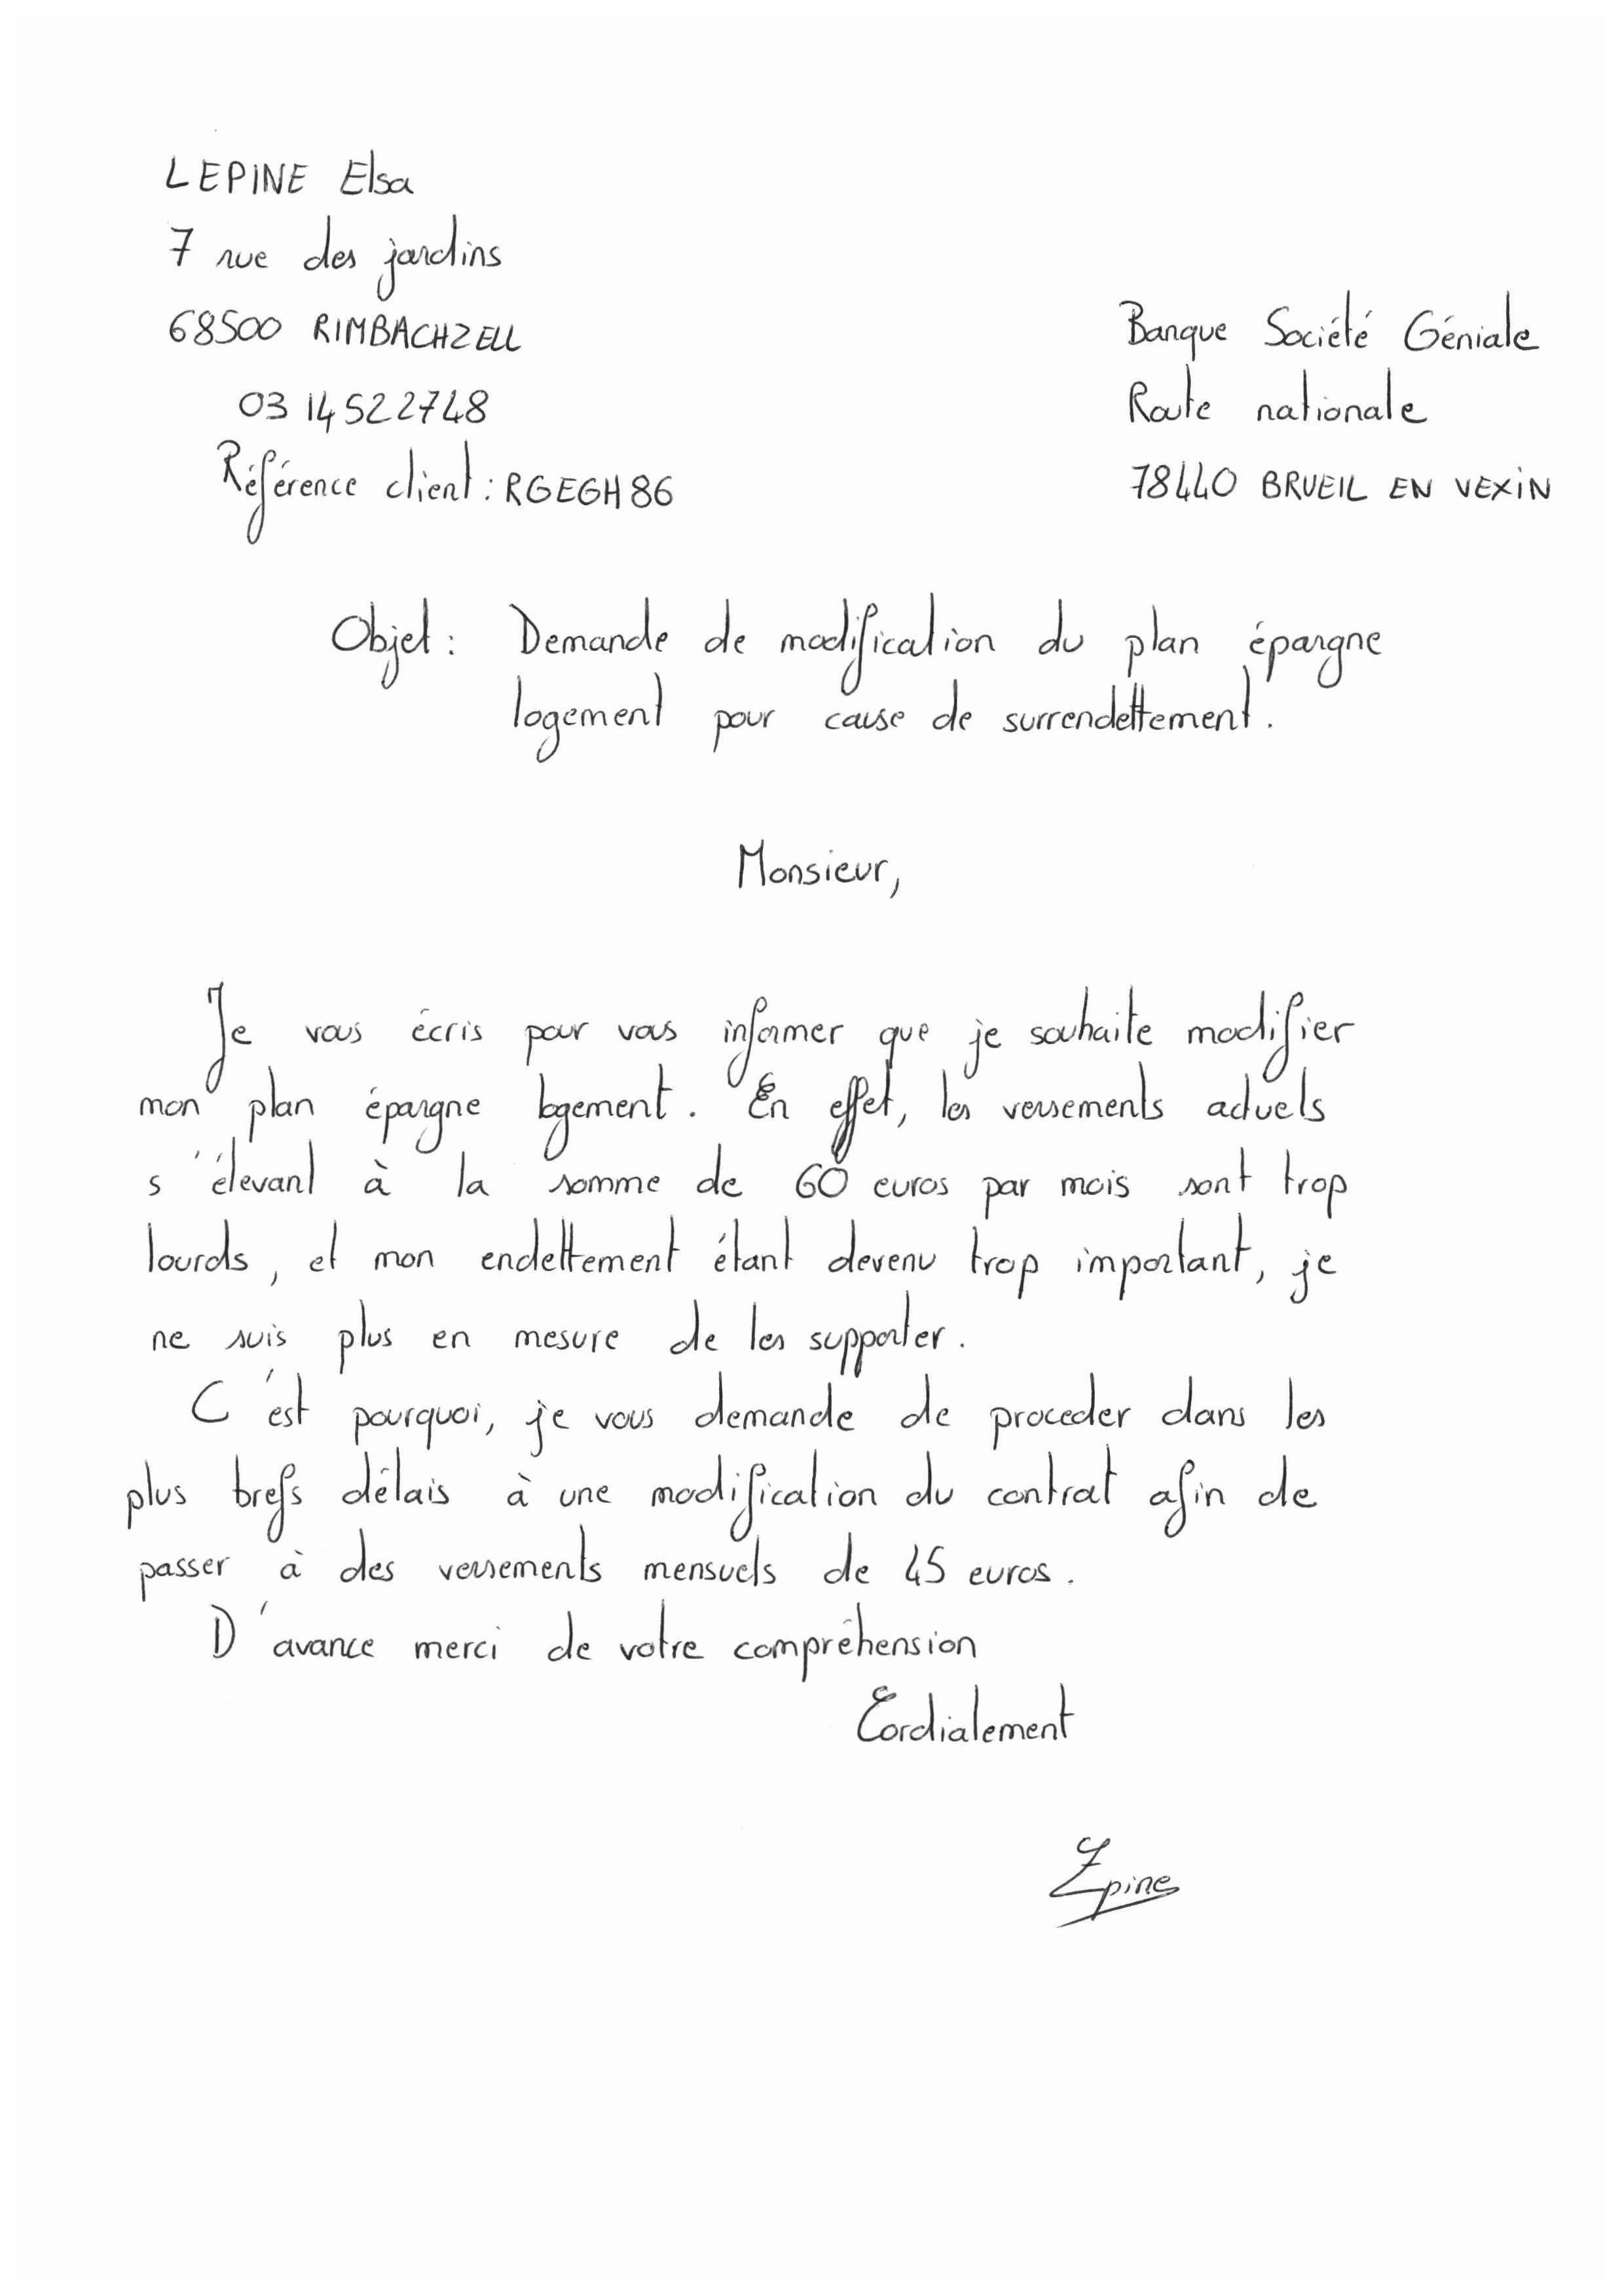 LEPINE Elsa
7 rue des jardins
68500 RIMBACHZELL
03 14522748
Référence client : RGEGH86
Banque Société Géniale
Route nationale
78440 BRUEIL EN VEXIN
Objet : Demande de modification du plan épargne
logement pour cause de surrendettement.
Monsieur,
Je vous écris pour vous informer que je souhaite modifier
mon plan épargne logement. En effet, les versements actuels
s'élevant à la somme de 60 euros par mois sont trop
lourds, et mon endettement étant devenu trop important, je
ne suis plus en mesure de les supporter.
C'est pourquoi, je vous demande de proceder dans les
plus brefs délais à une modification du contrat afin de
passer à des versements mensuels de 45 euros.
D'avance merci de votre compréhension
Cordialement
Lpine